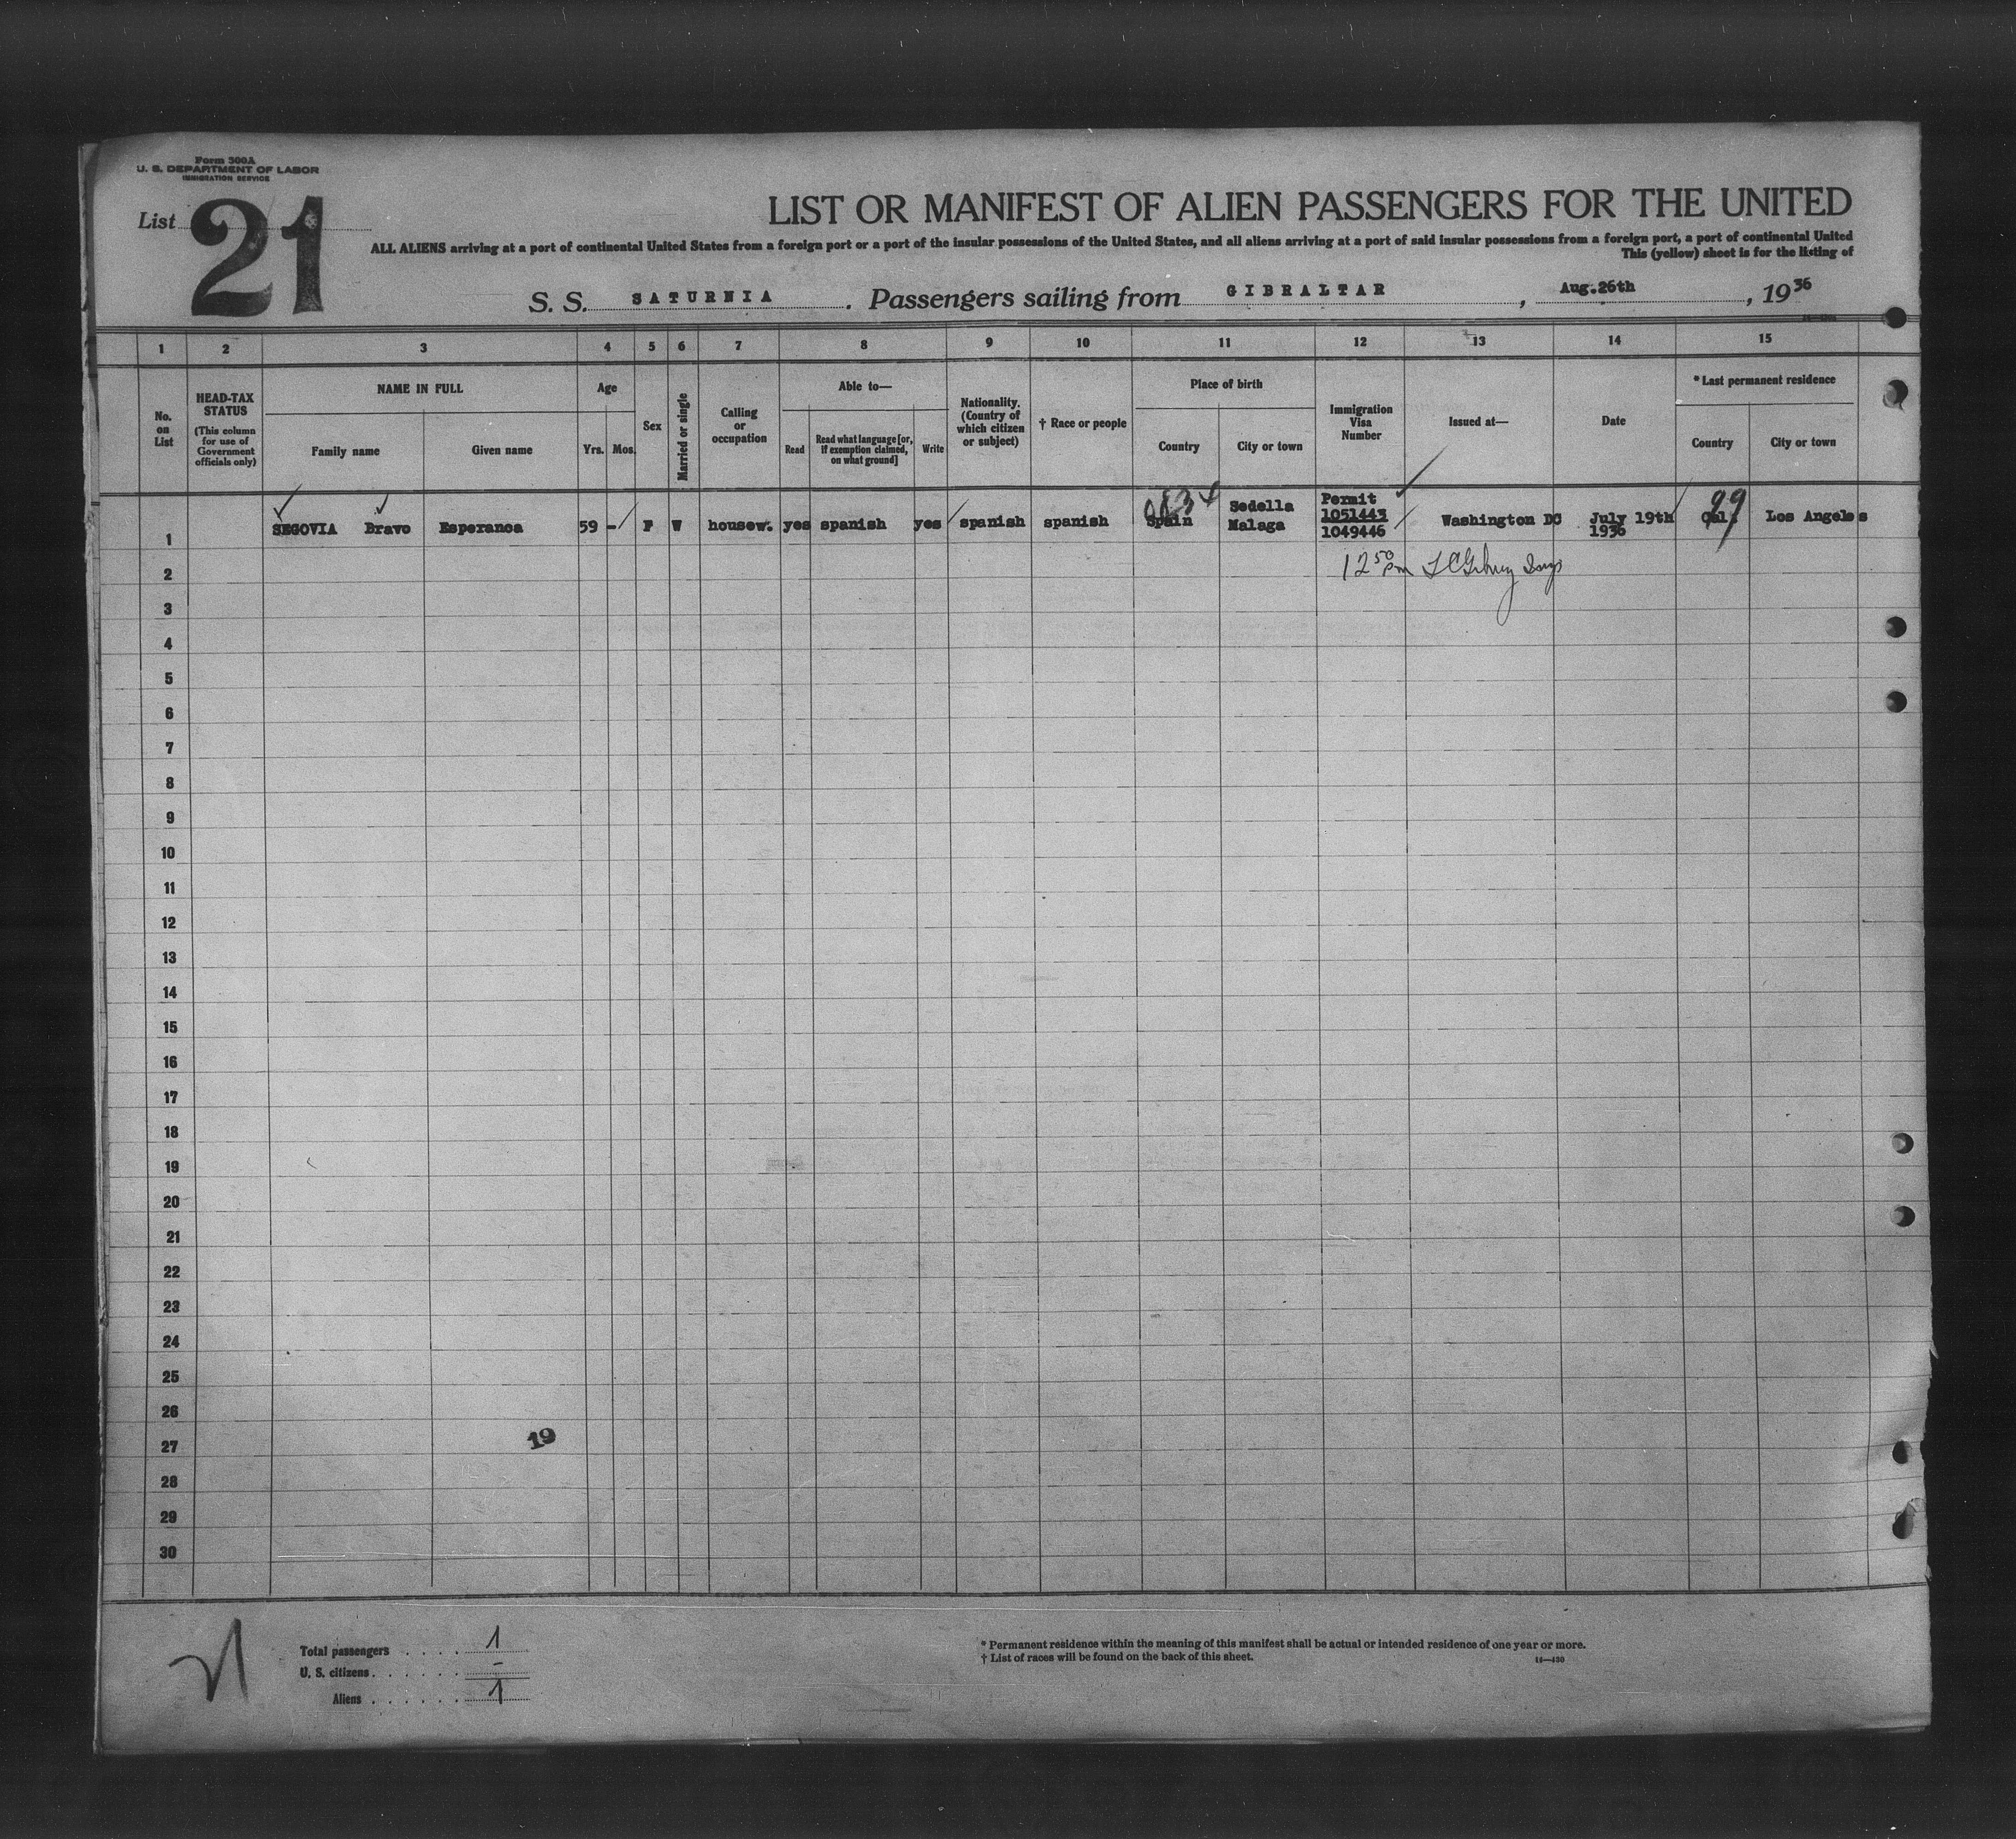 Form 500A
U. S. DEPARTMENT OF LABOR
IMMIGRATION SERVICE
List 21
LIST OR MANIFEST OF ALIEN PASSENGERS FOR THE UNITED
ALL ALIENS arriving at a port of continental United States from a foreign port or a port of the insular possessions of the United States, and all aliens arriving at a port of said insular possessions from a foreign port, a port of continental United
This (yellow) sheet is for the listing of
S. S. SATURNIA. Passengers sailing from GIBRALTAR, Aug.26th, 1936
1 2 3 4 5 6 7 8 9 10 11 12 13 14 15
No. on List
HEAD-TAX STATUS
(This column for use of Government officials only)
NAME IN FULL
Family name
Given name
Age
Yrs. Mos.
Sex
Married or single
Calling or occupation
Able to—
Read
Read what language [or, if exemption claimed, on what ground]
Write
Nationality. (Country of which citizen or subject)
† Race or people
Place of birth
Country
City or town
Immigration Visa Number
Issued at—
Date
* Last permanent residence
Country
City or town
1 SEGOVIA Bravo Esperanca 59 - F W housew. yes spanish yes spanish spanish Spain Sedella Malaga Permit 1051443 1049446 Washington DC July 19th 1936 99 Cal. Los Angeles
2 12 50 pm
3
4
5
6
7
8
9
10
11
12
13
14
15
16
17
18
19
20
21
22
23
24
25
26
27 19
28
29
30
21
Total passengers . . . . 1
U. S. citizens . . . . . . -
Aliens . . . . . . 1
* Permanent residence within the meaning of this manifest shall be actual or intended residence of one year or more.
† List of races will be found on the back of this sheet.
14—430